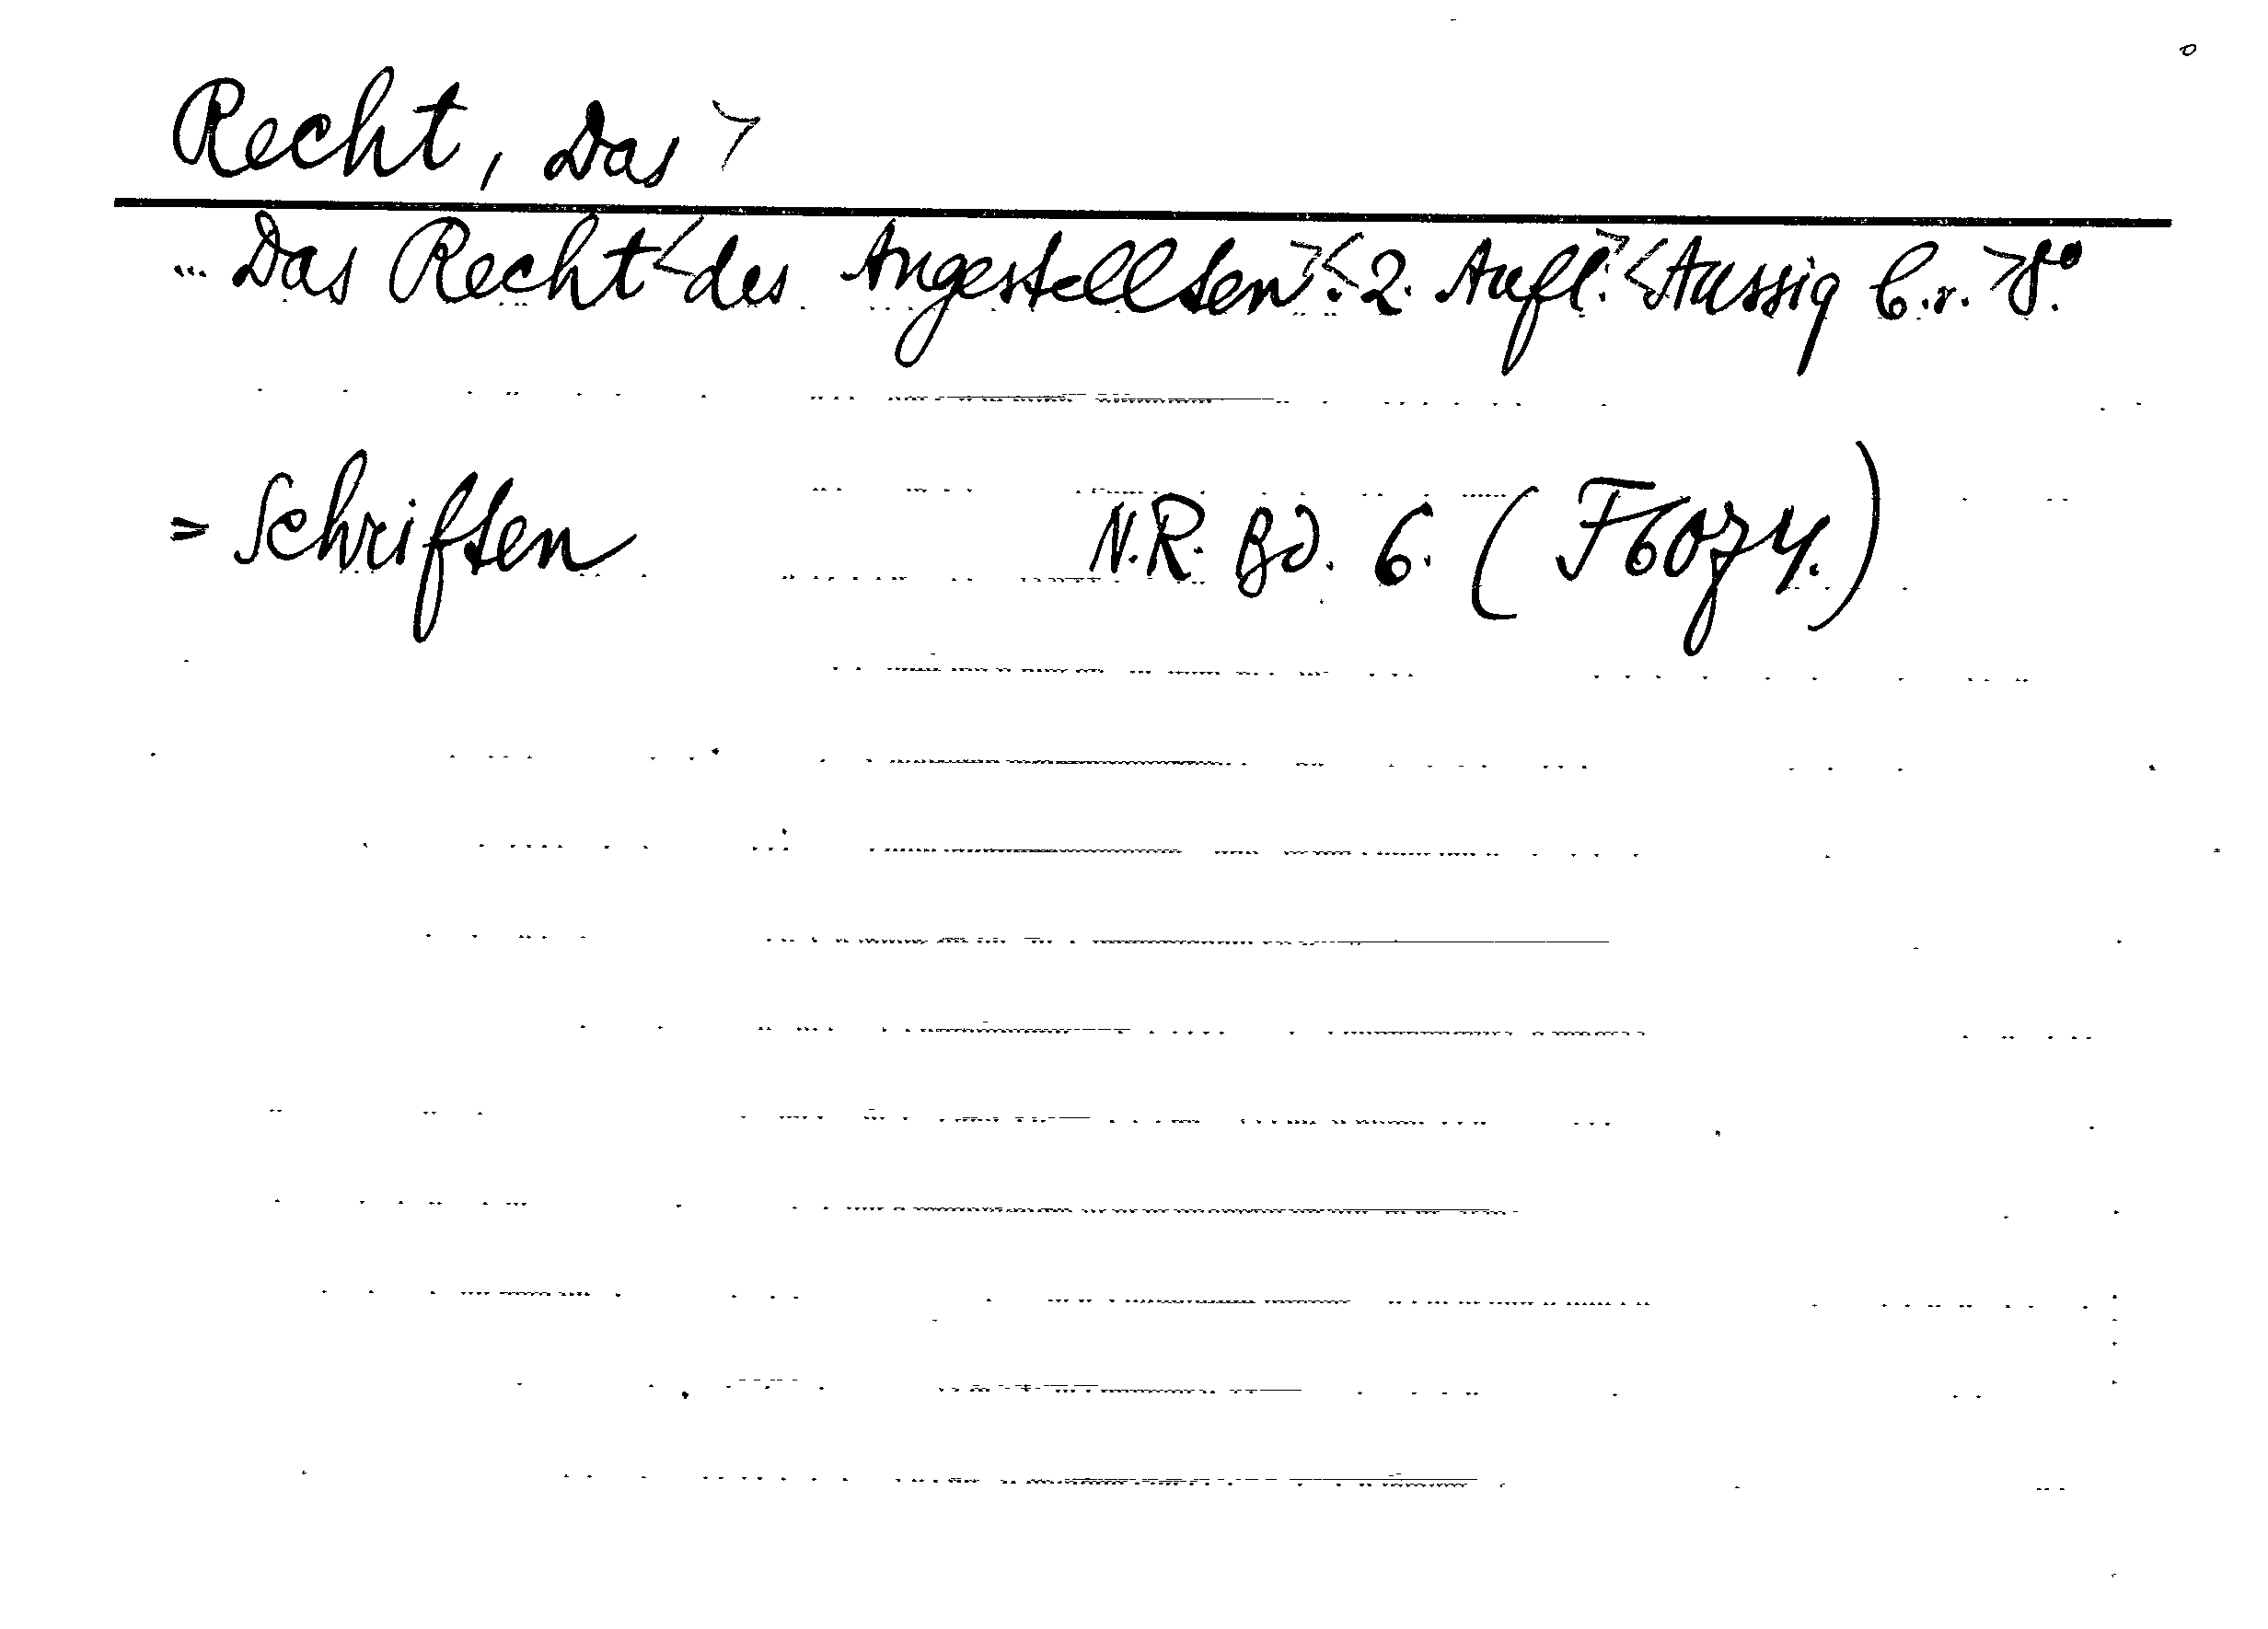 Recht, Das >
... Das Recht < des Angestellten >. < 2. Aufl. > < Aussig C.r. > 8°.
= Schriften N.R. Bd. 6. (F6074.)